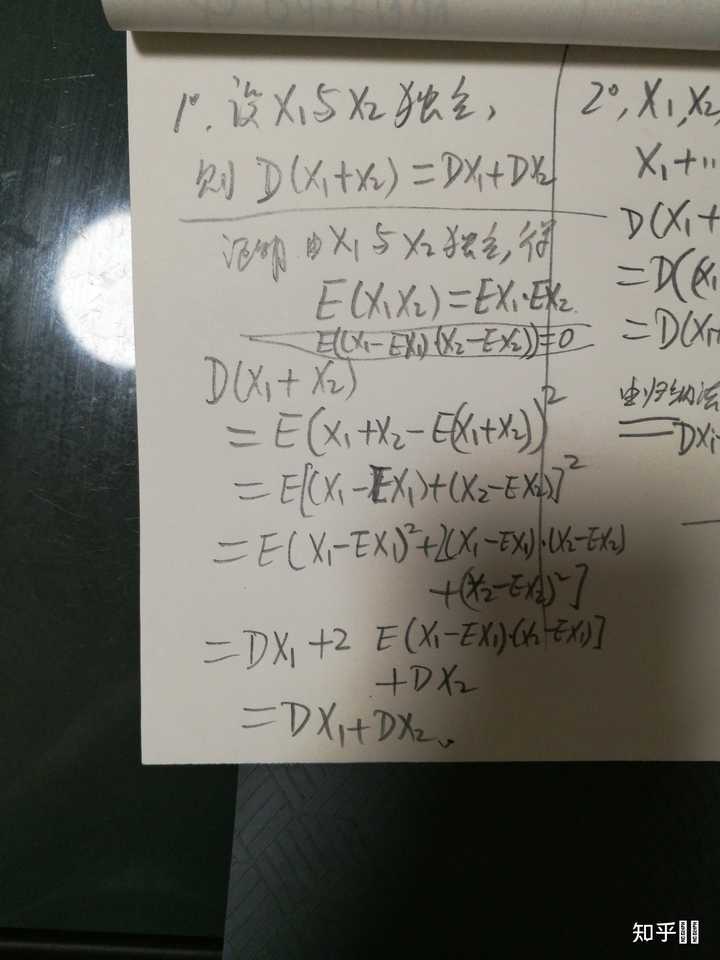 1°. 设 X₁与X₂独立,
则 D(X₁+X₂)=DX₁+DX₂
证明 由X₁与X₂独立,得
E(X₁X₂)=EX₁·EX₂.
E((X₁-EX₁)·(X₂-EX₂))=0
D(X₁+X₂)
=E(X₁+X₂-E(X₁+X₂))²
=E[(X₁-EX₁)+(X₂-EX₂)]²
=E(X₁-EX₁)²+2(X₁-EX₁)·(X₂-EX₂)
+(X₂-EX₂)²]
=DX₁+2 E(X₁-EX₁)·(X₂-EX₁)]
+DX₂
=DX₁+DX₂.
2°, X₁, X₂,
X₁+…
D(X₁+
=D((X₁
=D(X₁+
由归纳法
=DX₁
知乎